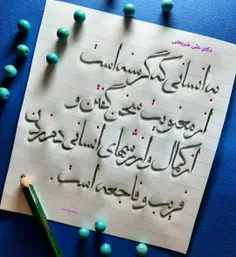 دکتر علی شریعتی
به انسانی که گرسنه است
از معنویت سخن گفتن و
از کمال و ارزشهای انسانی دم زدن
فریب و فاجعه است